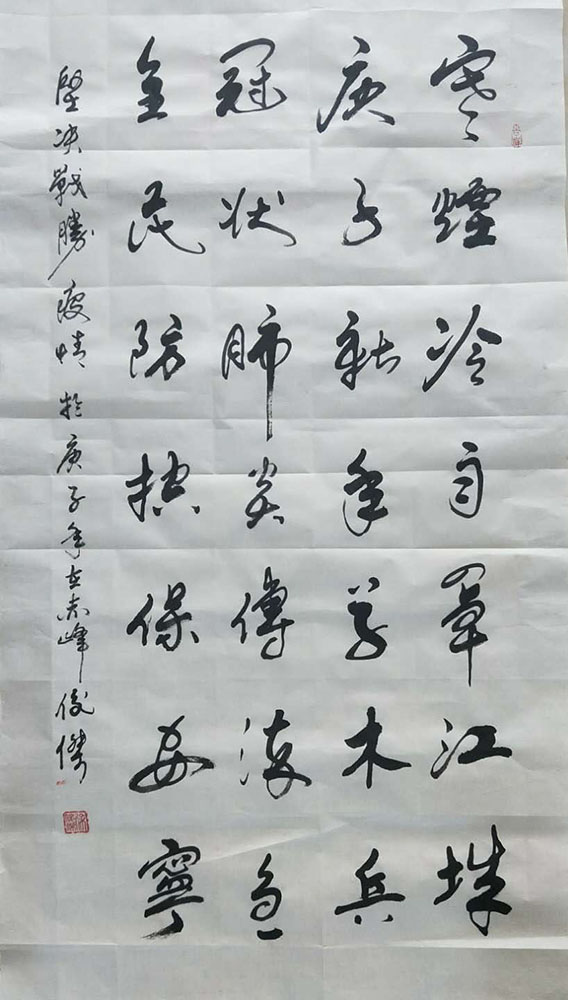 寒煙冷月罩江城
庚子新年草木兵
冠状肺炎傳急
全民防控保安寧
堅决戰勝疫情於庚子年在赤峰俊傑